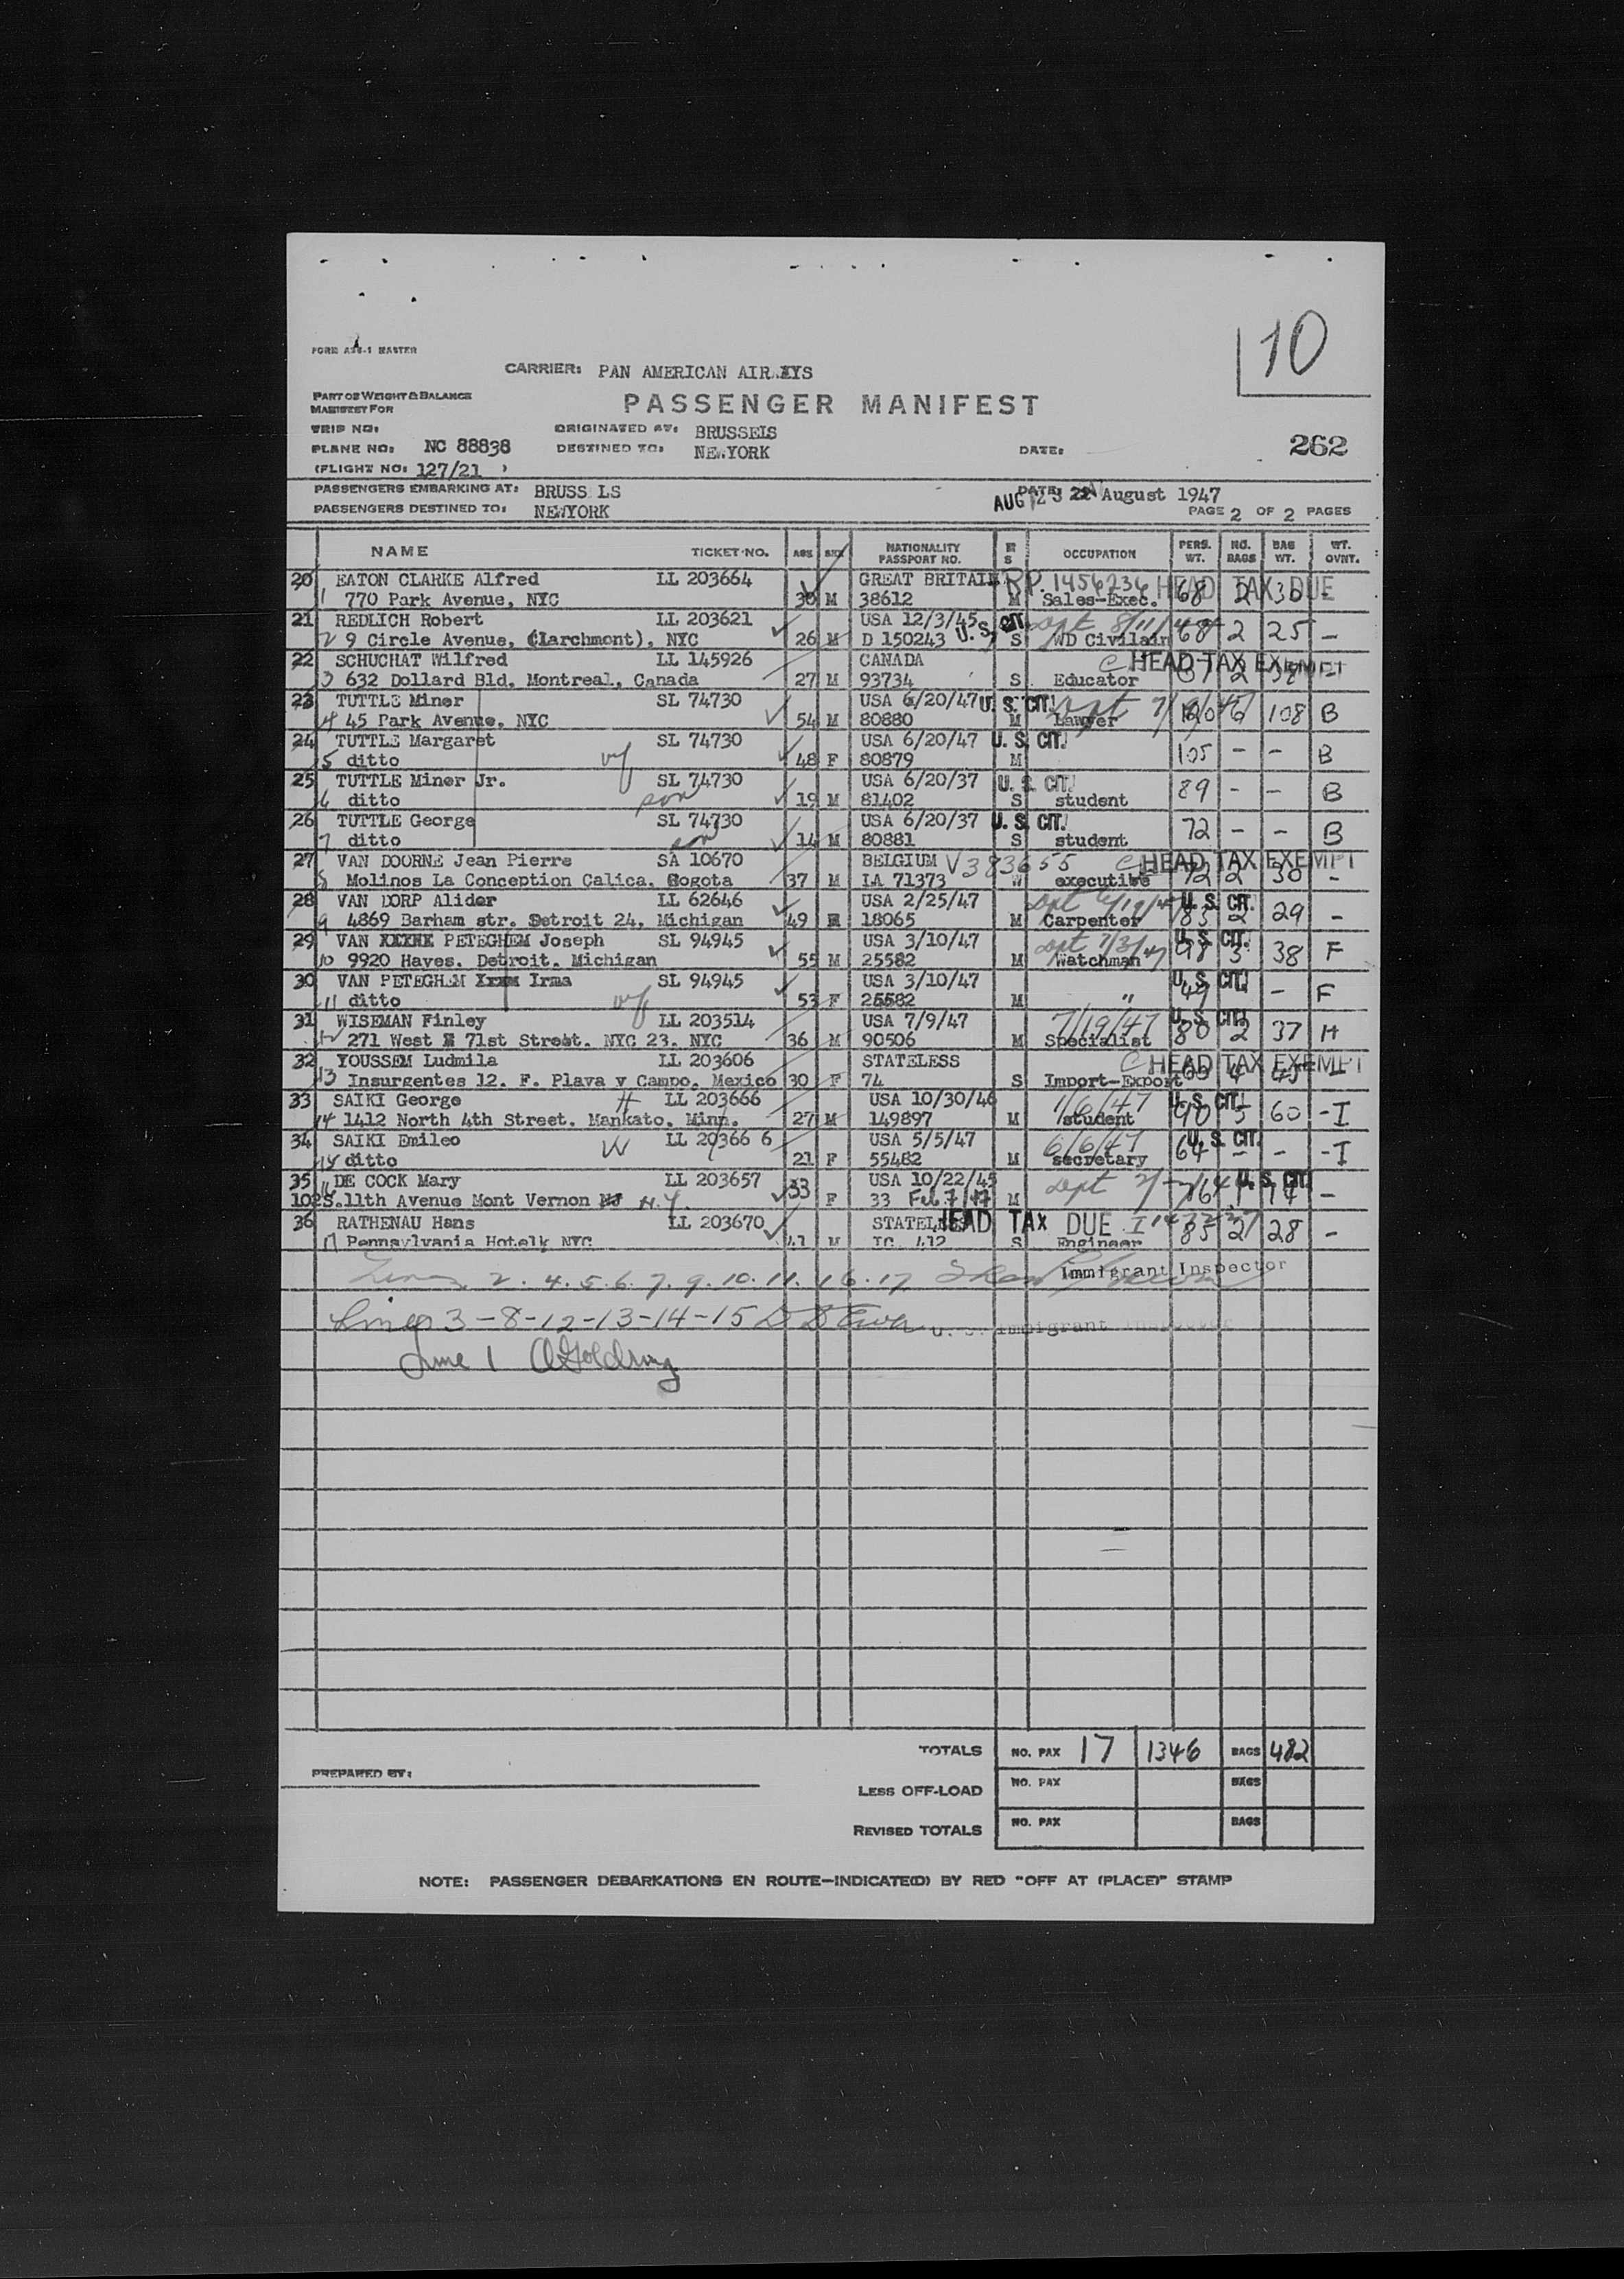 10
FORM
CARRIER: PAN AMERICAN AIR.AYS
PART OF WEIGHT & BALANCE
MANIFEST FOR
PASSENGER MANIFEST
TRIP NO:
ORIGINATED AT: BRUSSELS
PLANE NO: NC 88838
DESTINED TO: NEWYORK
DATE:
262
(FLIGHT NO: 127/21 )
PASSENGERS EMBARKING AT: BRUSS LS
DATE: AUG August 1947
PASSENGERS DESTINED TO: NEWYORK
PAGE 2 OF 2 PAGES
NAME TICKET NO. AGE SEX NATIONALITY PASSPORT NO. M S OCCUPATION PERS. WT. NO. BAGS BAG WT. WT. GVNT.
20 EATON CLARKE Alfred LL 203664 GREAT BRITAIN RP. 1456236 HEAD TAX DUE
1 770 Park Avenue, NYC 38612 M Sales-Exec. 68
21 REDLICH Robert LL 203621 USA 12/3/45 U.S. CIT.
2 9 Circle Avenue, (Larchmont), NYC 26 M D 150243 S WD Civilain 68 2 25 –
22 SCHUCHAT Wilfred LL 145926 CANADA C HEAD TAX EXEMPT
3 632 Dollard Bld. Montreal, Canada 27 M 93734 S Educator
23 TUTTLE Miner SL 74730 USA 6/20/47 U. S. CIT.
4 45 Park Avenue, NYC 54 M 80880 M Lawyer 108 B
24 TUTTLE Margaret wf SL 74730 USA 6/20/47 U. S. CIT.
5 ditto 48 F 80879 M 105 – – B
25 TUTTLE Miner Jr. SL 74730 USA 6/20/37 U. S. CIT.
6 ditto son 19 M 81402 S student 89 – – B
26 TUTTLE George SL 74730 USA 6/20/37 U. S. CIT.
7 ditto son 14 M 80881 S student 72 – – B
27 VAN DOORNE Jean Pierre SA 10670 BELGIUM V383655 C HEAD TAX EXEMPT
8 Molinos La Conception Calica. Bogota 37 M LA 71373 W executive 72 2 30 –
28 VAN DORP Alider LL 62646 USA 2/25/47 U. S. CIT.
9 4869 Barham str. Detroit 24, Michigan 49 18065 M Carpenter 83 2 29 –
29 VAN PETEGHEM Joseph SL 94945 USA 3/10/47 U. S. CIT.
10 9920 Hayes. Detroit. Michigan 55 M 25582 M Watchman 98 3 38 F
30 VAN PETEGHEM Irma SL 94945 USA 3/10/47 U. S. CIT.
11 ditto wf 53 F 25582 M " – F
31 WISEMAN Finley LL 203514 USA 7/9/47 7/19/47 U. S. CIT.
12 271 West 71st Street. NYC 23. NYC 36 M 90506 M Specialist 80 2 37 H
32 YOUSSEM Ludmila LL 203606 STATELESS C HEAD TAX EXEMPT
13 Insurgentes 12. F. Plava y Campo. Mexico 30 F 74 S Import-Export
33 SAIKI George H LL 203666 USA 10/30/46 1/6/47 U. S. CIT.
14 1412 North 4th Street. Mankato. Minn. 27 M 149897 M student 90 5 60 -I
34 SAIKI Emileo W LL 20366 6 USA 5/5/47 6/6/47 U. S. CIT.
15 ditto 21 F 55482 M secretary 64 – – -I
35 DE COCK Mary LL 203657 USA 10/22/45 U. S. CIT.
16 102S.11th Avenue Mont Vernon NJ N.Y. 33 F 33 Feb 7/47 M
36 RATHENAU Hans LL 203670 STATELESS HEAD TAX DUE
17 Pennsylvania Hotelk NYC 41 M IC 412 S Engineer 85 2 28 –
Lines 2. 4. 5. 6. 7. 9. 10. 11. 16. 17 Immigrant Inspector
Lines 3-8-12-13-14-15 U. S. Immigrant Inspector
Line 1
TOTALS NO. PAX 17 1346 BAGS 482
PREPARED BY:
LESS OFF-LOAD NO. PAX BAGS
REVISED TOTALS NO. PAX BAGS
NOTE: PASSENGER DEBARKATIONS EN ROUTE—INDICATE(D) BY RED "OFF AT (PLACE)" STAMP